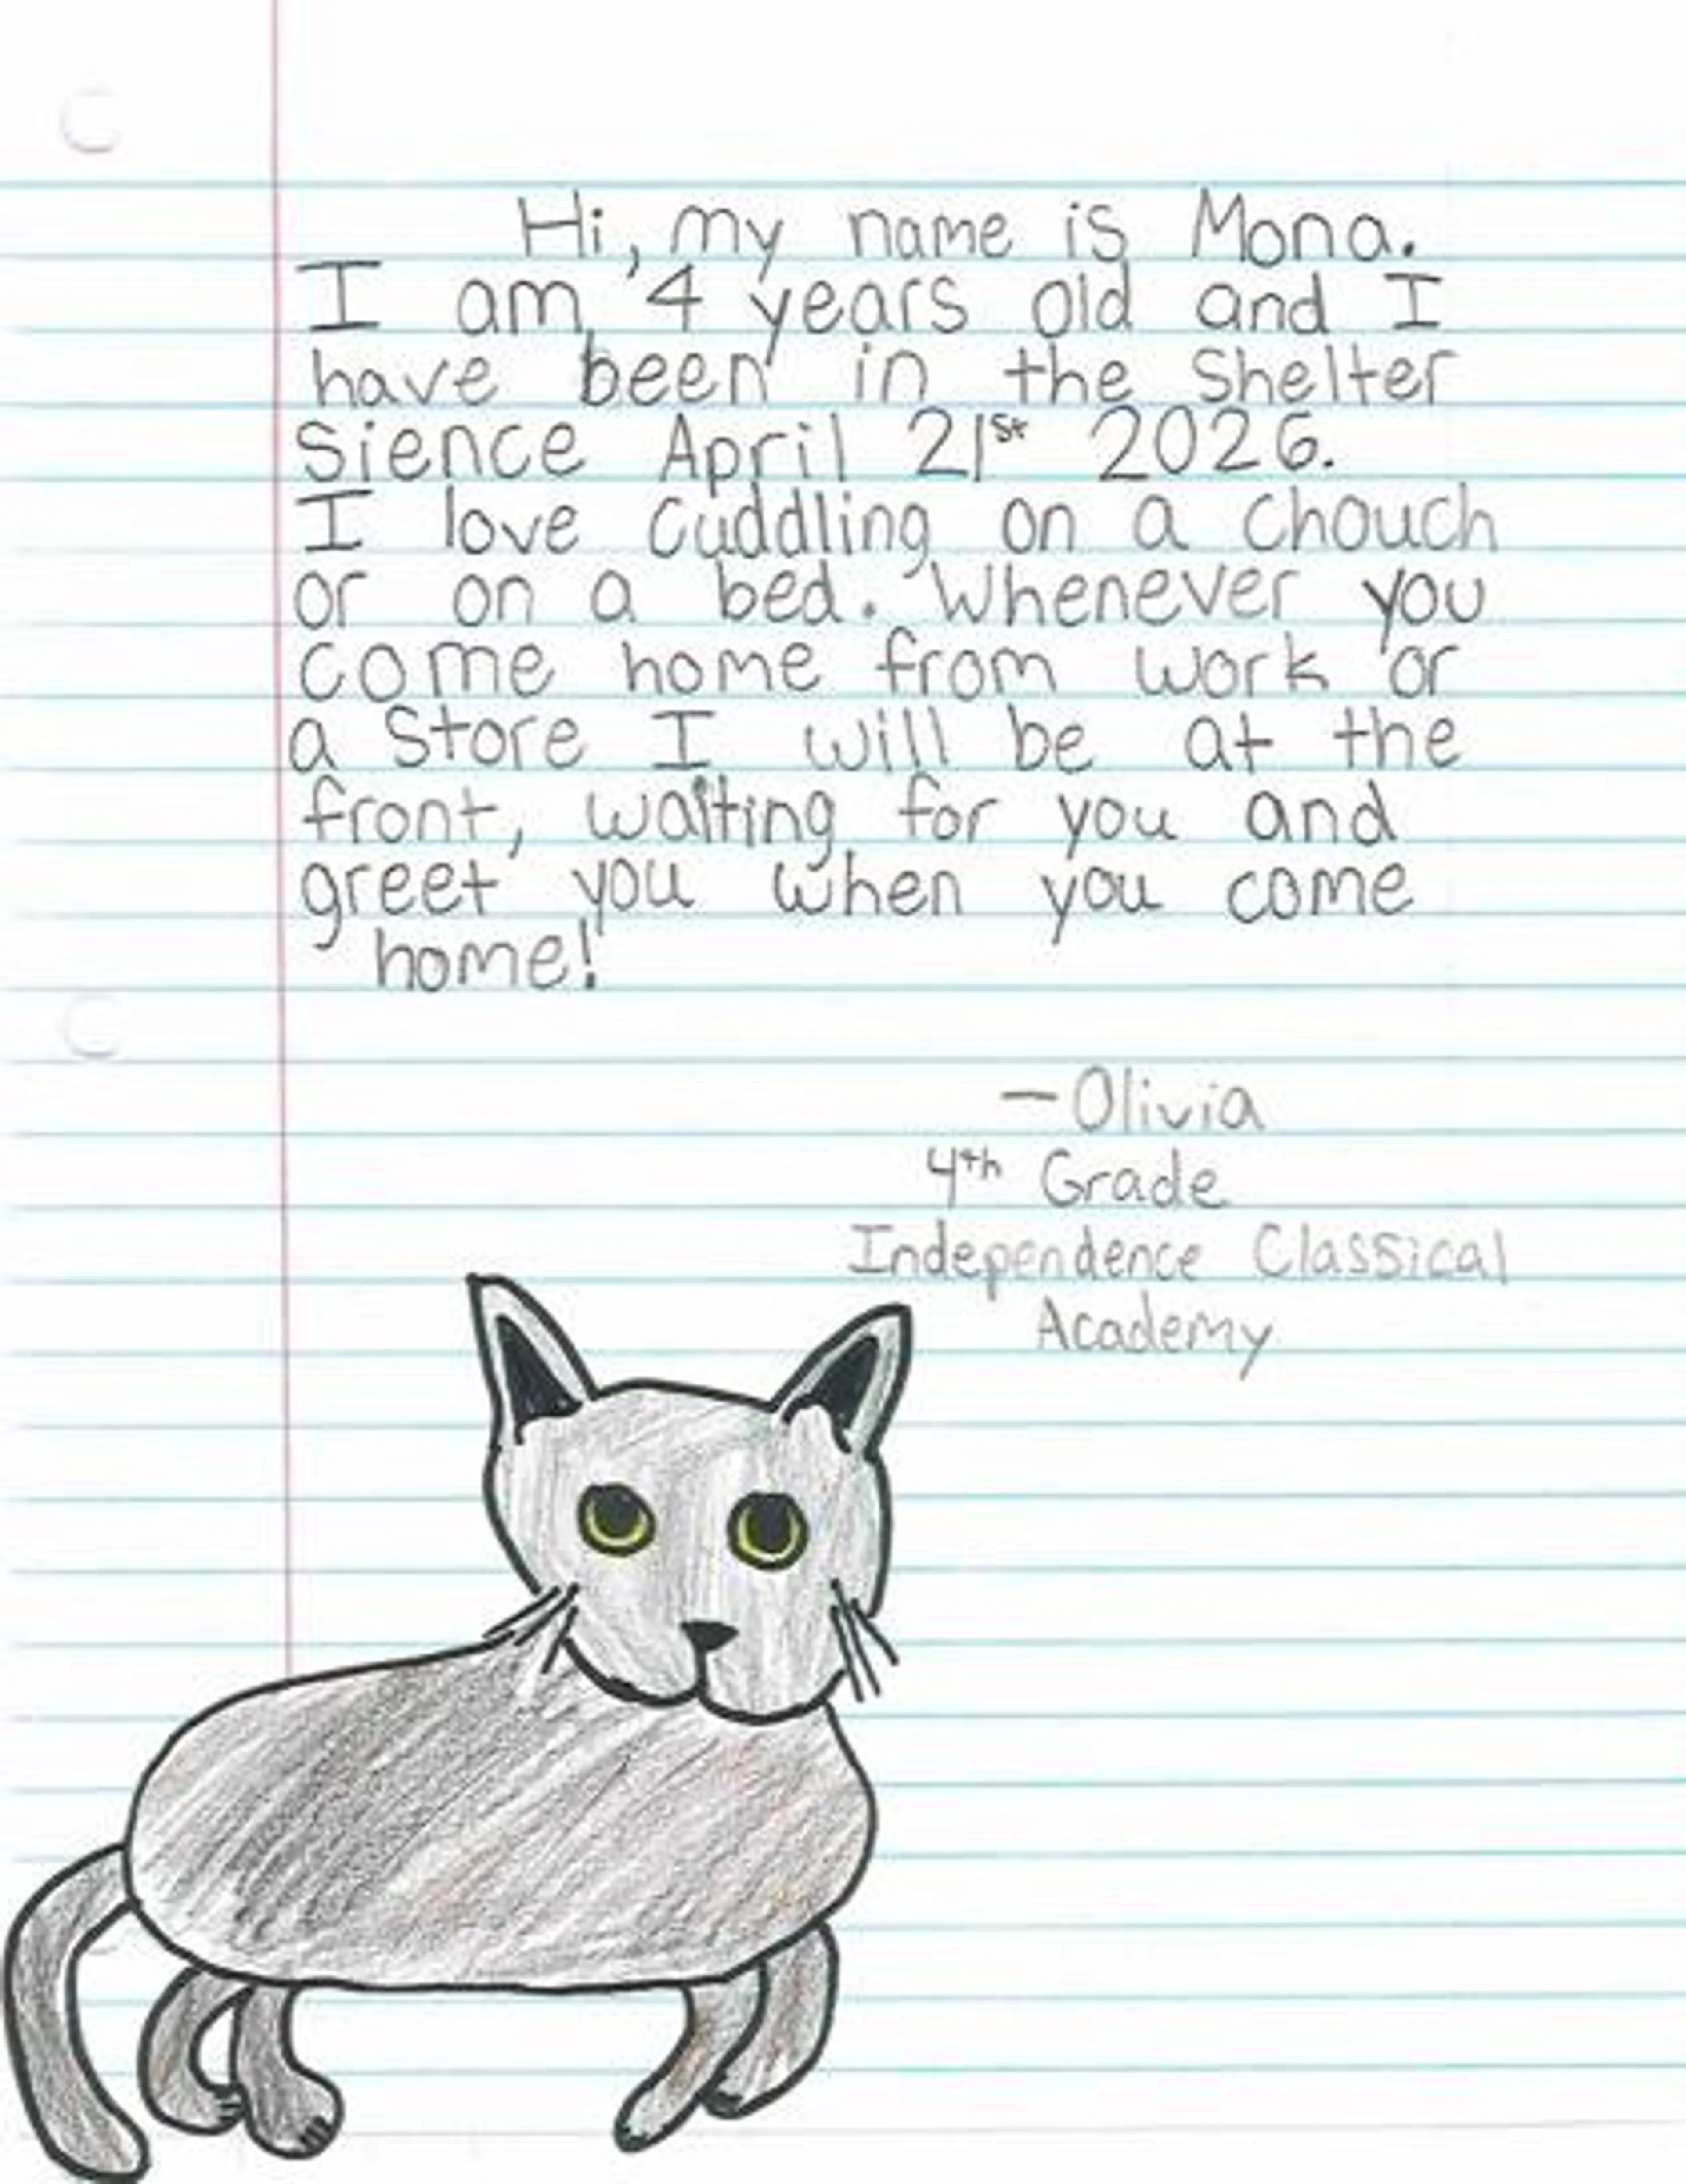 Hi, my name is Mona.
I am 4 years old and I
have been in the Shelter
sience April 21st 2026.
I love cuddling on a chouch
or on a bed. Whenever you
come home from work or
a store I will be at the
front, waiting for you and
greet you when you come
home!
—Olivia
4th Grade
Independence Classical
Academy